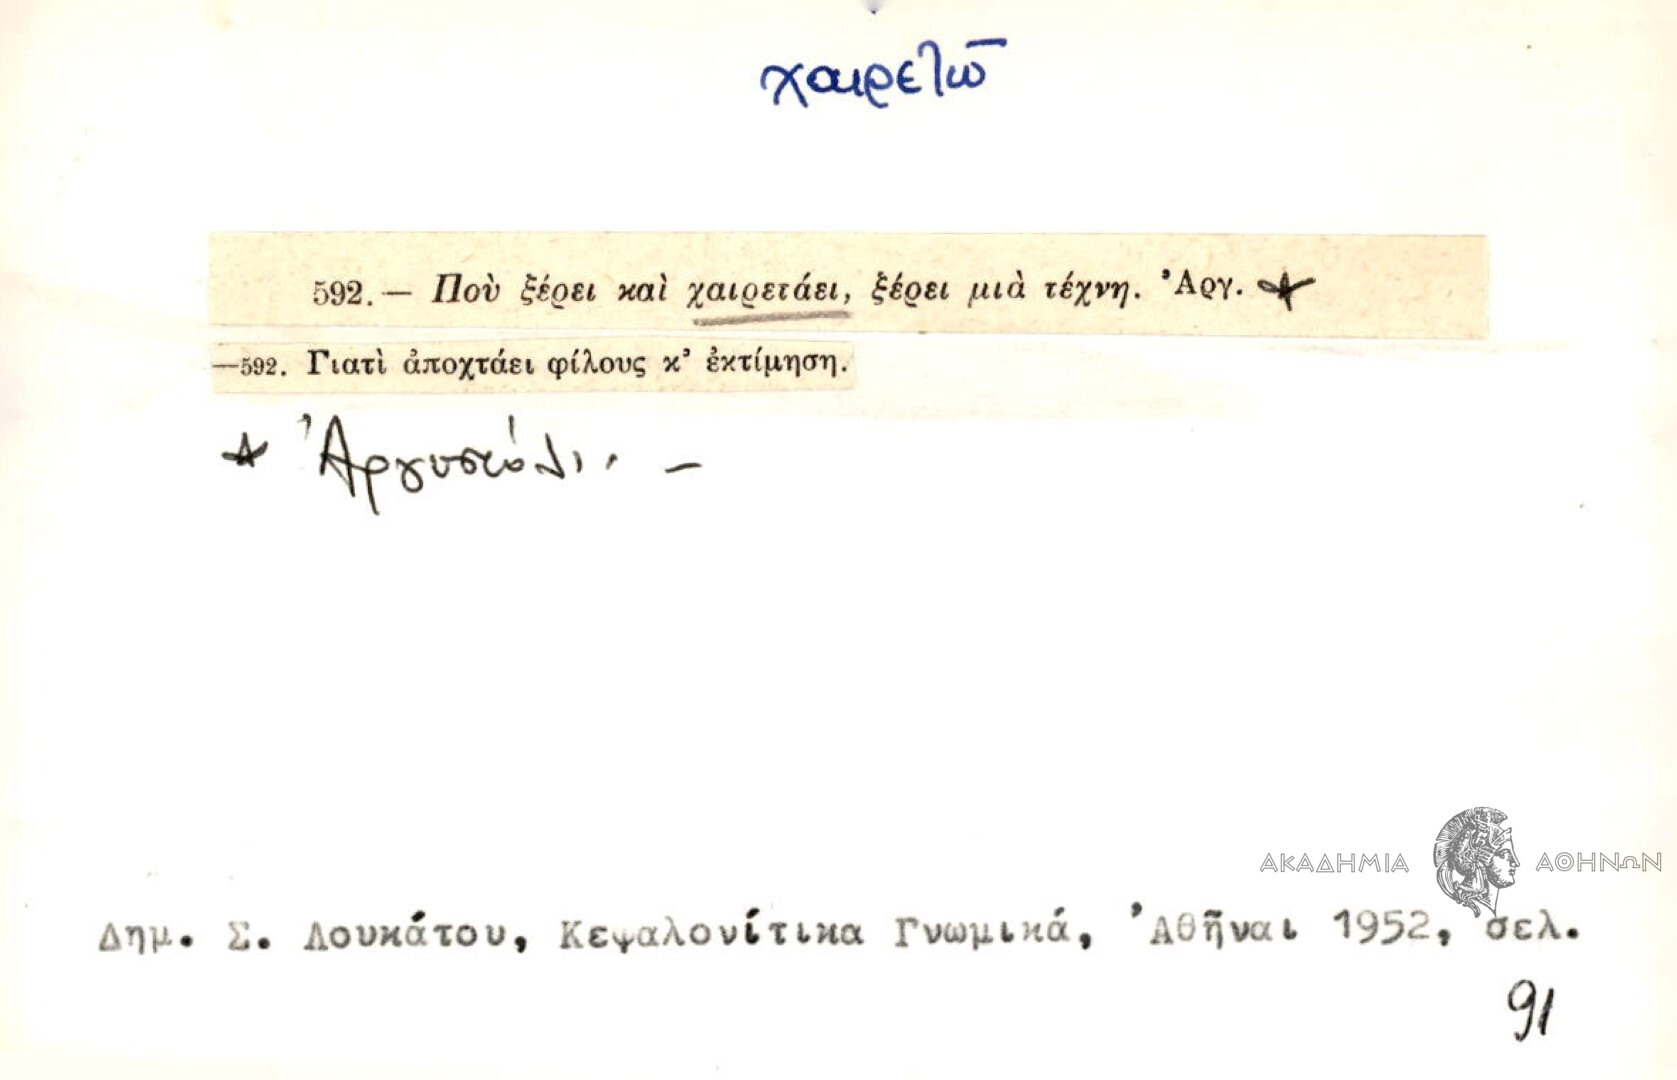 χαιρετῶ
592. — Ποὺ ξέρει καὶ χαιρετάει, ξέρει μιὰ τέχνη. Ἀργ. *
—592. Γιατὶ ἀποχτάει φίλους κ' ἐκτίμηση.
* Ἀργοστόλι. —
ΑΚΑΔΗΜΙΑ ΑΘΗΝΩΝ
Δημ. Σ. Λουκάτου, Κεφαλονίτικα Γνωμικά, Ἀθῆναι 1952, σελ.
91